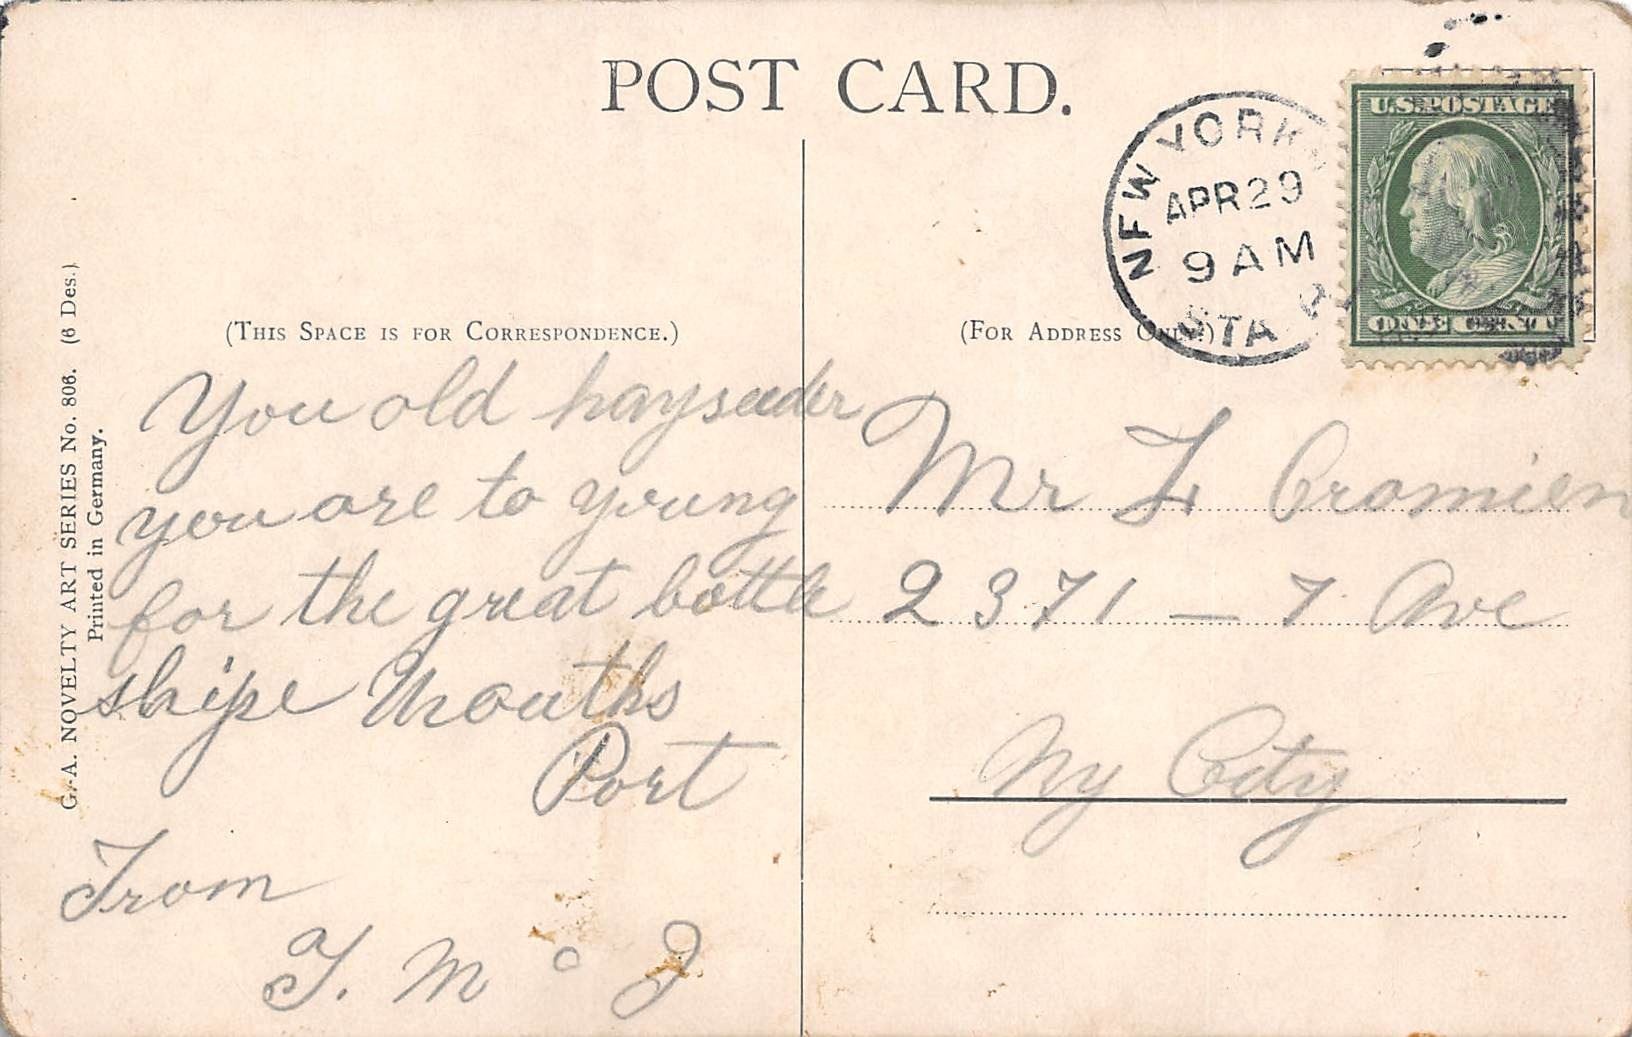 POST CARD.
NEW YORK
APR 29
9 AM
STA
U.S. POSTAGE
ONE CENT
(THIS SPACE IS FOR CORRESPONDENCE.)
(FOR ADDRESS ONLY.)
G.-A. NOVELTY ART SERIES No. 806. (6 Des.)
Printed in Germany.
You old hayseeder
you are to young
for the great battle
shipe Mouths
Port
From
T. Mc J
Mr L Cromien
2371 — 7 Ave
Ny City